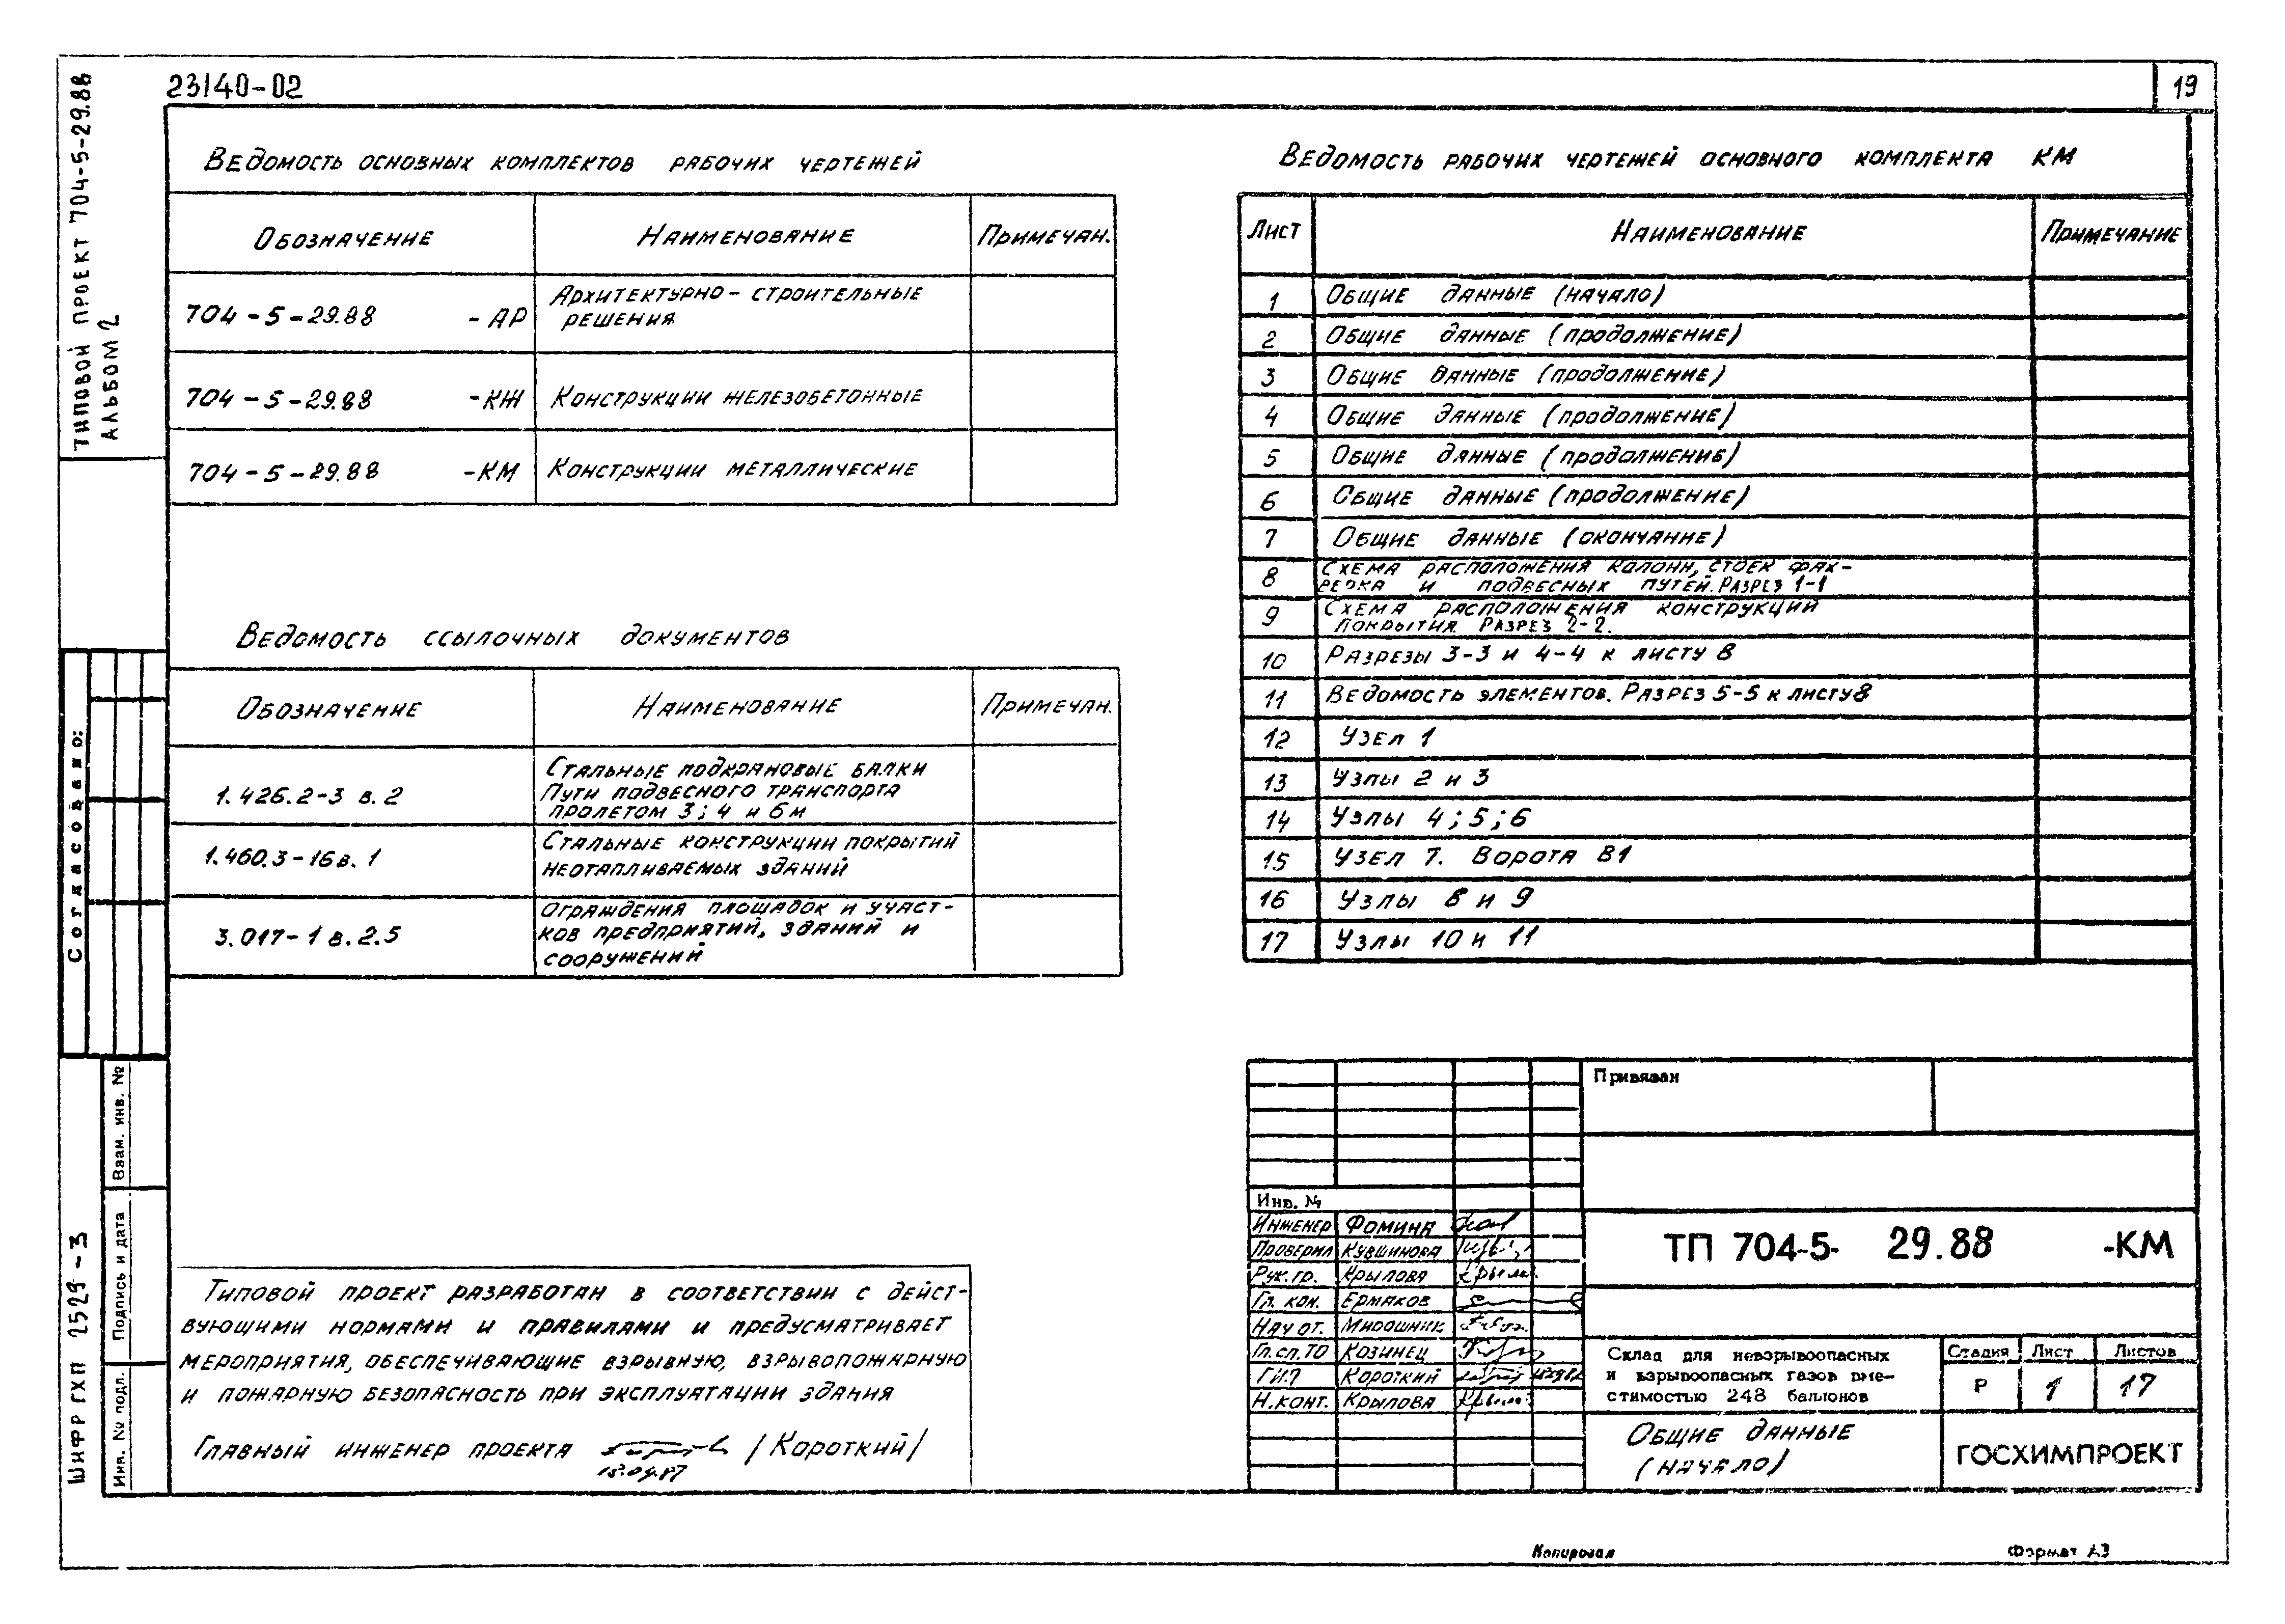 23140-02
19
ТИПОВОЙ ПРОЕКТ 704-5-29.88
АЛЬБОМ 2
Ведомость основных комплектов рабочих чертежей
Обозначение Наименование Примечан.
704-5-29.88 -АР Архитектурно-строительные
решения
704-5-29.88 -КЖ Конструкции железобетонные
704-5-29.88 -КМ Конструкции металлические
Ведомость ссылочных документов
Обозначение Наименование Примечан.
1.426.2-3 в.2 Стальные подкрановые балки
Пути подвесного транспорта
пролетом 3; 4 и 6м
1.460.3-16 в.1 Стальные конструкции покрытий
неотапливаемых зданий
3.017-1 в.2.5 Ограждения площадок и участ-
ков предприятий, зданий и
сооружений
Типовой проект разработан в соответствии с дейст-
вующими нормами и правилами и предусматривает
мероприятия, обеспечивающие взрывную, взрывопожарную
и пожарную безопасность при эксплуатации здания
Главный инженер проекта /Короткий/
Ведомость рабочих чертежей основного комплекта КМ
Лист Наименование Примечание
1 Общие данные (начало)
2 Общие данные (продолжение)
3 Общие данные (продолжение)
4 Общие данные (продолжение)
5 Общие данные (продолжение)
6 Общие данные (продолжение)
7 Общие данные (окончание)
8 Схема расположения колонн, стоек фах-
верка и подвесных путей. Разрез 1-1
9 Схема расположения конструкций
покрытия. Разрез 2-2.
10 Разрезы 3-3 и 4-4 к листу 8
11 Ведомость элементов. Разрез 5-5 к листу 8
12 Узел 1
13 Узлы 2 и 3
14 Узлы 4; 5; 6
15 Узел 7. Ворота В1
16 Узлы 8 и 9
17 Узлы 10 и 11
Согласовано:
Взам. инв. №
Подпись и дата
Инв. № подл.
Шифр ГХП 2529-3
Привязан
Инв. №
Инженер Фомина
Проверил Кувшинова
Рук. гр. Крылова
Гл. кон. Ермаков
Нач от. Мирошник
Гл.сп.ТО Козинец
ГИП Короткий
Н.конт. Крылова
ТП 704-5- 29.88 -КМ
Склад для невзрывоопасных
и взрывоопасных газов вме-
стимостью 248 баллонов
Стадия Лист Листов
Р 1 17
Общие данные
(начало)
ГОСХИМПРОЕКТ
Копировал
Формат А3